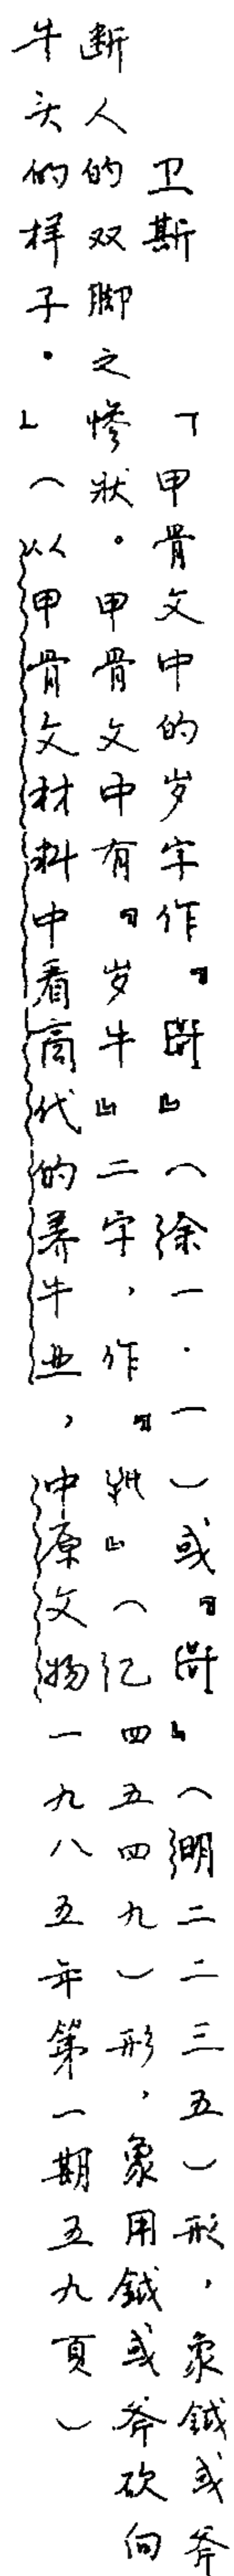 卫斯 「甲骨文中的岁字作『』(馀一·一)或『』(明二二三五)形，象钺或斧
断人的双脚之惨状。甲骨文中有『岁牛』二字，作『』(记四五四九)形，象用钺或斧砍向
牛头的样子。」(以甲骨文材料中看商代的养牛业，中原文物一九八五年第一期五九页)